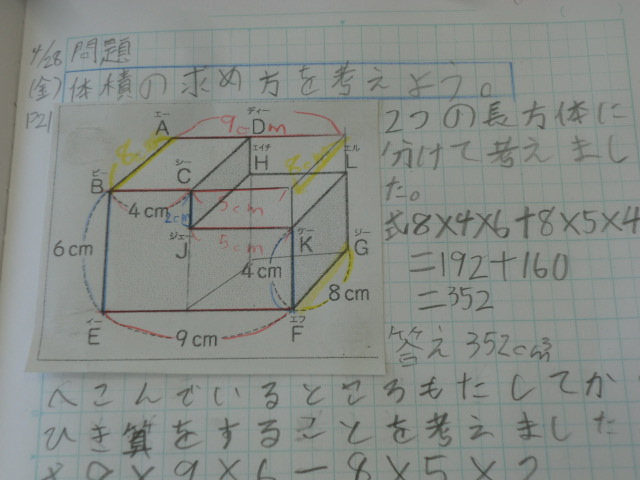 4/28 問題
(金) 体積の求め方を考えよう。
P21
エー ディー
A 9cm D
エイチ エル
H L
ビー シー
B C
4cm 5cm
2cm
5cm
ジェー ケー ジー
J K G
6cm
4cm
8cm
イー エフ
E F
9cm
2つの長方体に
分けて考えまし
た。
式8×4×6+8×5×4
=192+160
=352
答え 352cm³
へこんでいるところもたしてか
ひき算をすることを考えました